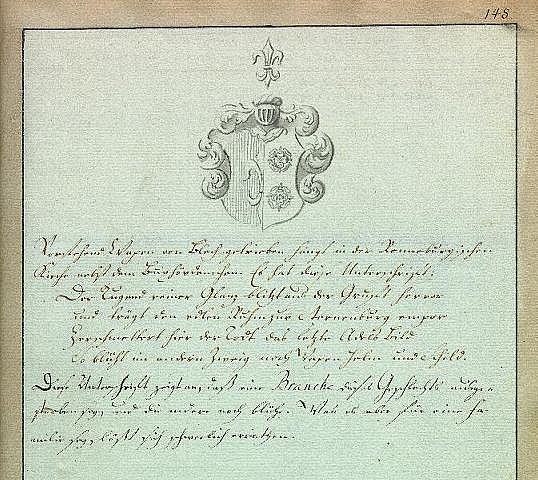 148
Vorstehend Wapen von Blech getrieben hangt in der Ronneburgischen
Kirche nebst dem Buxhövdenschen. Es hat diese Unterschrift:
Der Tugend reiner Glanz blitzt aus der Gruft hervor
und trägt den edlen Ruhm zur Sternenburg empor
Zerschmettert hier der Todt das letzte Adels Bild
So blüht im andern Zweig noch Helm und Schild.
Diese Unterschrift zeigt an, daß eine Branche dieses Geschlechts ausge-
storben sey, und die andere noch blühe. Was es aber für eine Fa-
milie sey, läßt sich schwerlich errathen.